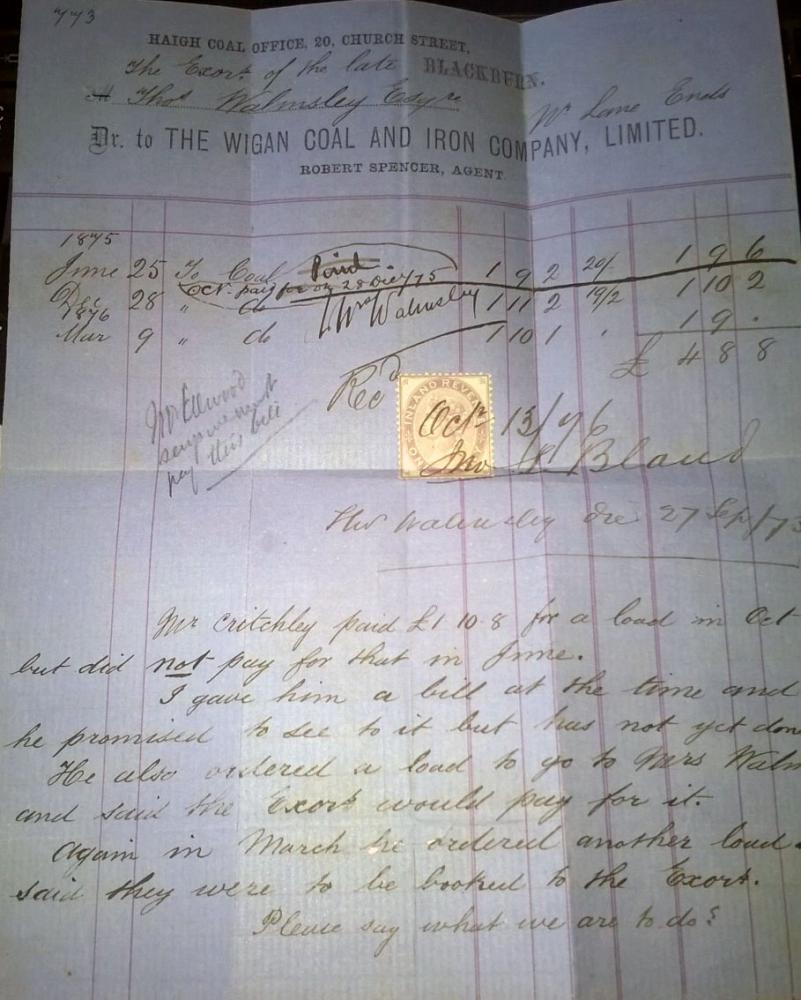 773
HAIGH COAL OFFICE, 20, CHURCH STREET,
BLACKBURN.
The Exors of the late
M Thos Walmsley Esqre
Lane Ends
Dr. to THE WIGAN COAL AND IRON COMPANY, LIMITED.
ROBERT SPENCER, AGENT.
1875
June 25 To Coal Paid 1 9 2 20/ 1 9 6
Oct. pay for on 28 Dec/75
Dec 28 " do 1 11 2 19/2 1 10 2
Walmsley
1876
Mar 9 " do 1 10 1 " 1 9 .
£ 4 8 8
Recd
INLAND REVENUE
Octr 13/76
Jno Bland
Mr Ellwood
pay this bill
Walmsley 27 Sep/75
Mr Critchley paid £1 10 8 for a load in Oct
but did not pay for that in June.
I gave him a bill at the time and
he promised to see to it but has not yet done
He also ordered a load to go to Mrs Walm
and said the Exors would pay for it.
Again in March he ordered another load
said they were to be booked to the Exors.
Please say what we are to do?